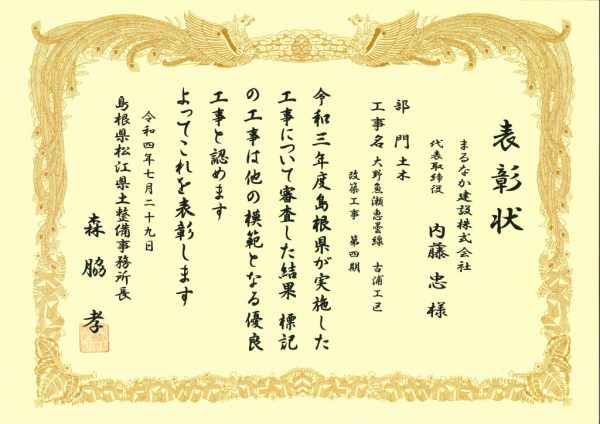 表彰状
まるなか建設株式会社
代表取締役 内藤 忠 様
部門 土木
工事名 大野魚瀬恵曇線 古浦工区
改築工事 第四期
令和三年度島根県が実施した
工事について審査した結果 標記
の工事は他の模範となる優良
工事と認めます
よってこれを表彰します
令和四年七月二十九日
島根県松江県土整備事務所長
森脇 孝